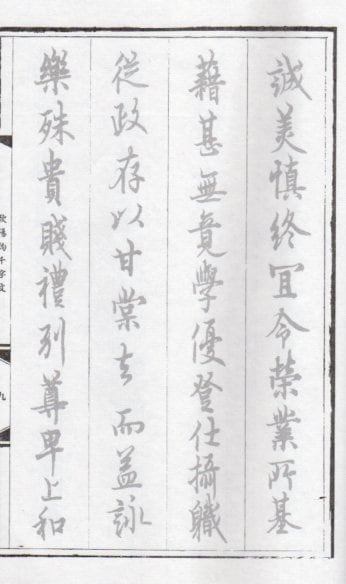 誠美慎終冝令榮業所基
藉甚無竟學優登仕攝職
從政存以甘棠去而益詠
樂殊貴賤禮別尊卑上和
歐陽詢千字文
九